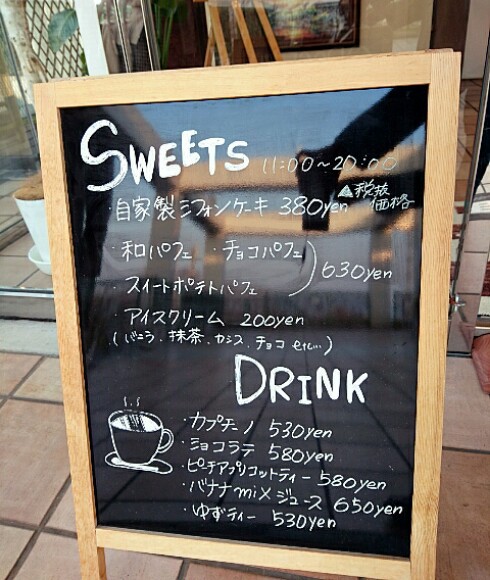 SWEETS 11:00～20:00
・自家製シフォンケーキ 380yen ▲税抜価格
・和パフェ ・チョコパフェ
・スイートポテトパフェ 630yen
・アイスクリーム 200yen
(バニラ.抹茶.カシス.チョコ etc…)
DRINK
・カプチーノ 530yen
・ショコラテ 580yen
・ピーチアプリコットティー 580yen
・バナナmixジュース 650yen
・ゆずティー 530yen